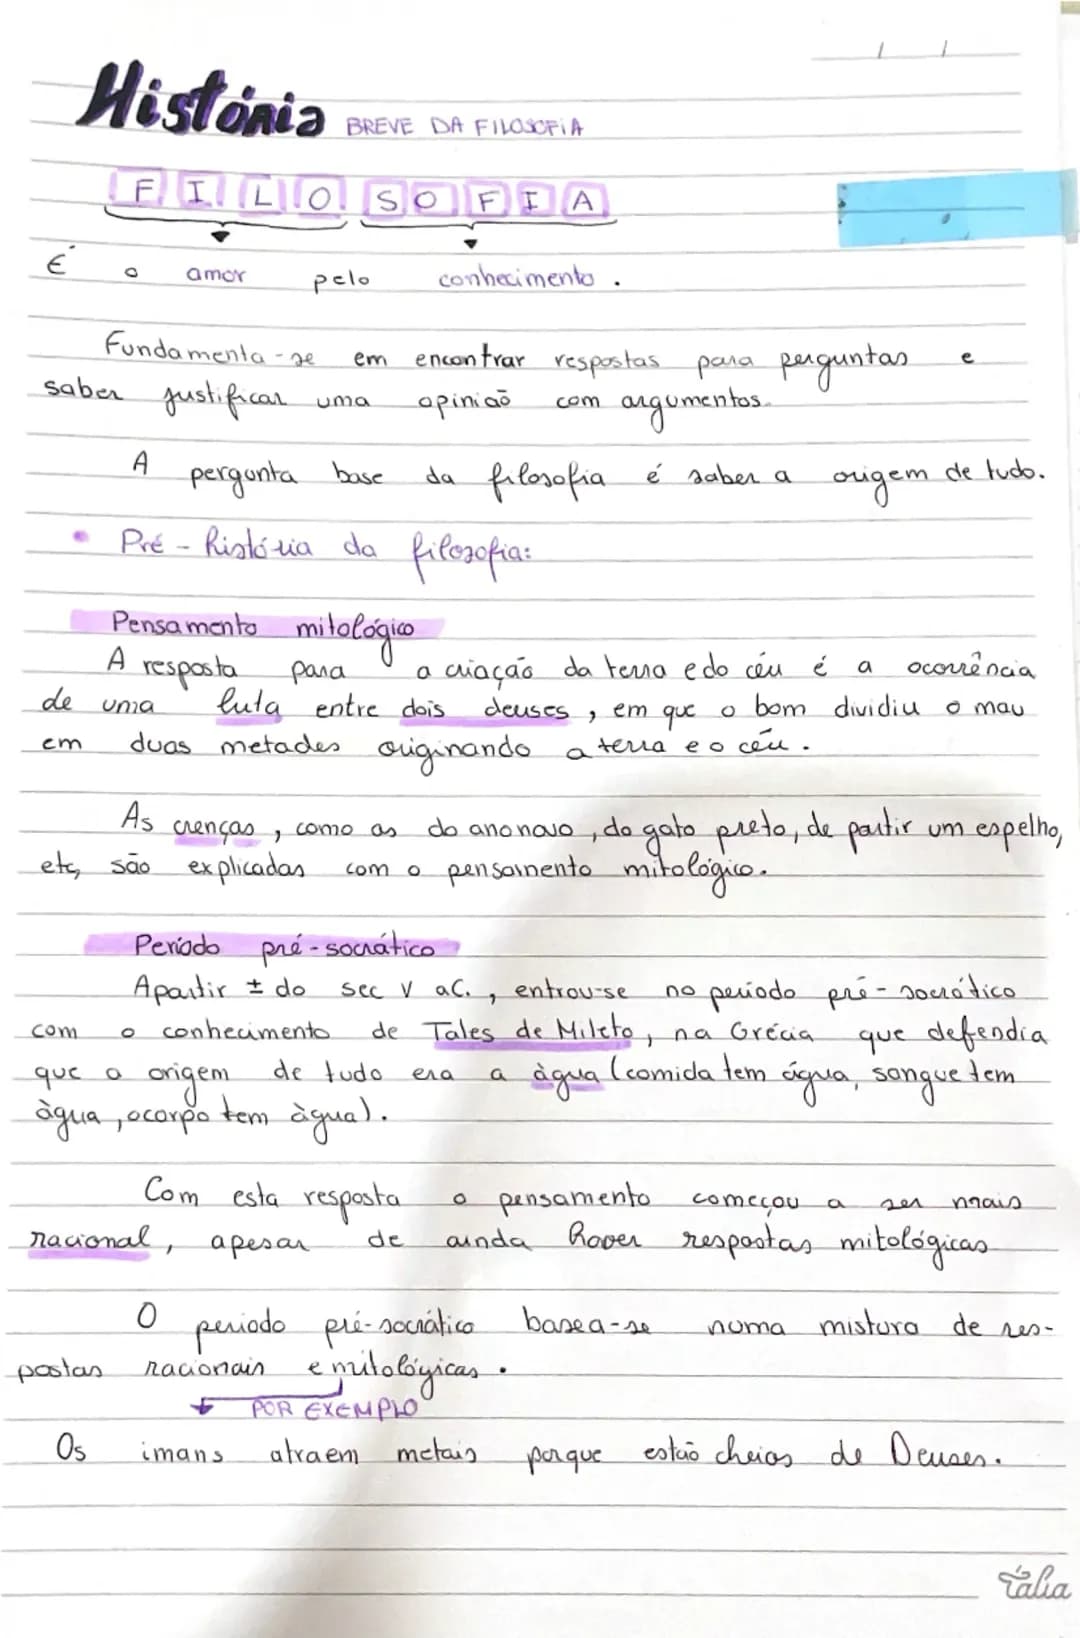 História BREVE DA FILOSOFIA
FILOSOFIA
É o amor pelo conhecimento.
Fundamenta-se em encontrar respostas para perguntas e
saber justificar uma opinião com argumentos.
A pergunta base da filosofia é saber a origem de tudo.
• Pré-história da filosofia:
Pensamento mitológico
A resposta para a criação da terra e do céu é a ocorrência
de uma luta entre dois deuses, em que o bom dividiu o mau
em duas metades originando a terra e o céu.
As crenças, como as do ano novo, do gato preto, de partir um espelho,
etc, são explicadas com o pensamento mitológico.
Periodo pré-socrático
Apartir ± do sec V aC., entrou-se no periodo pré-socrático
com o conhecimento de Tales de Mileto, na Grécia que defendia
que a origem de tudo era a àgua (comida tem água, sangue tem
àgua, o corpo tem àgua).
Com esta resposta o pensamento começou a ser mais
racional, apesar de ainda haver respostas mitológicas
O periodo pré-socrático basea-se numa mistura de res-
postas racionais e mitológicas.
POR EXEMPLO
Os imans atraem metais porque estão cheios de Deuses.
Talia